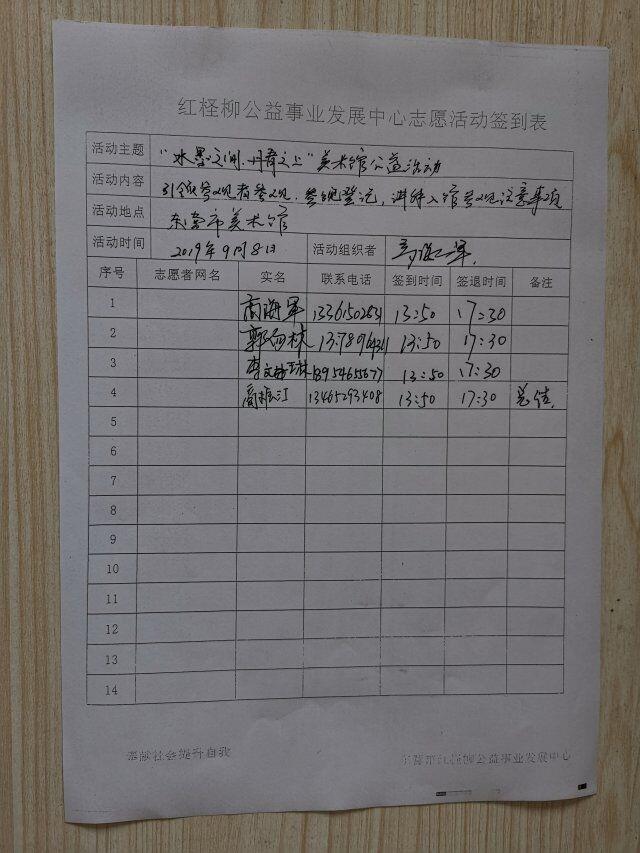 红柽柳公益事业发展中心志愿活动签到表
活动主题 "水墨之间.丹青之上"美术馆公益活动
活动内容 引领参观者参观,参观登记,讲解入馆参观注意事项
活动地点 东营市美术馆
活动时间 2019年9月8日 活动组织者
序号 志愿者网名 实名 联系电话 签到时间 签退时间 备注
1 13:50 17:30
2 13:50 17:30
3 18954655677 13:50 17:30
4 13465293408 13:50 17:30 总结
5
6
7
8
9
10
11
12
13
14
奉献社会提升自我 东营市红柽柳公益事业发展中心